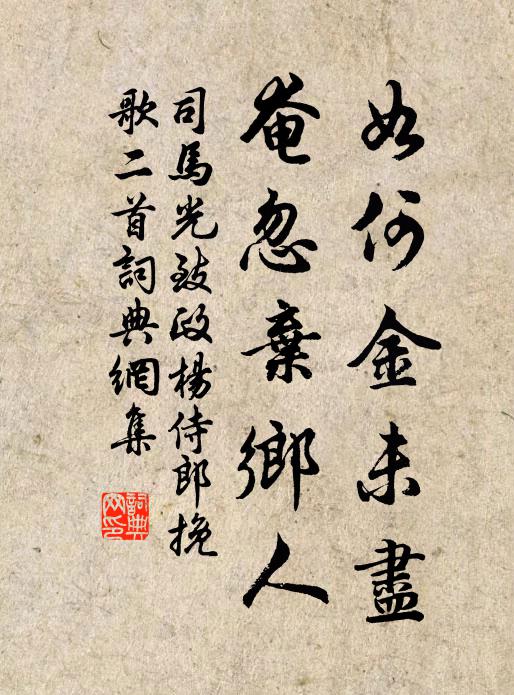 如何金未盡
奄忽棄鄉人
司馬光致政楊侍郎挽
歌二首詞典網集
詞典
网印